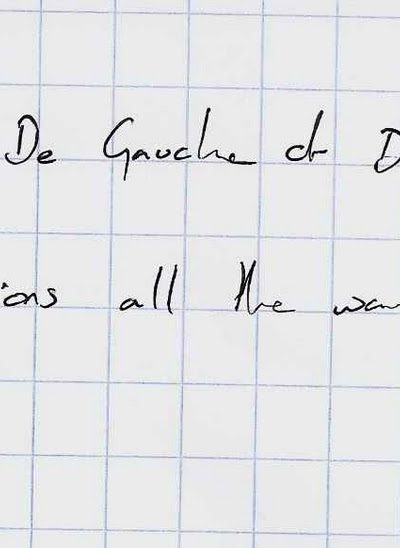 De Gauche et D
ions all the wa